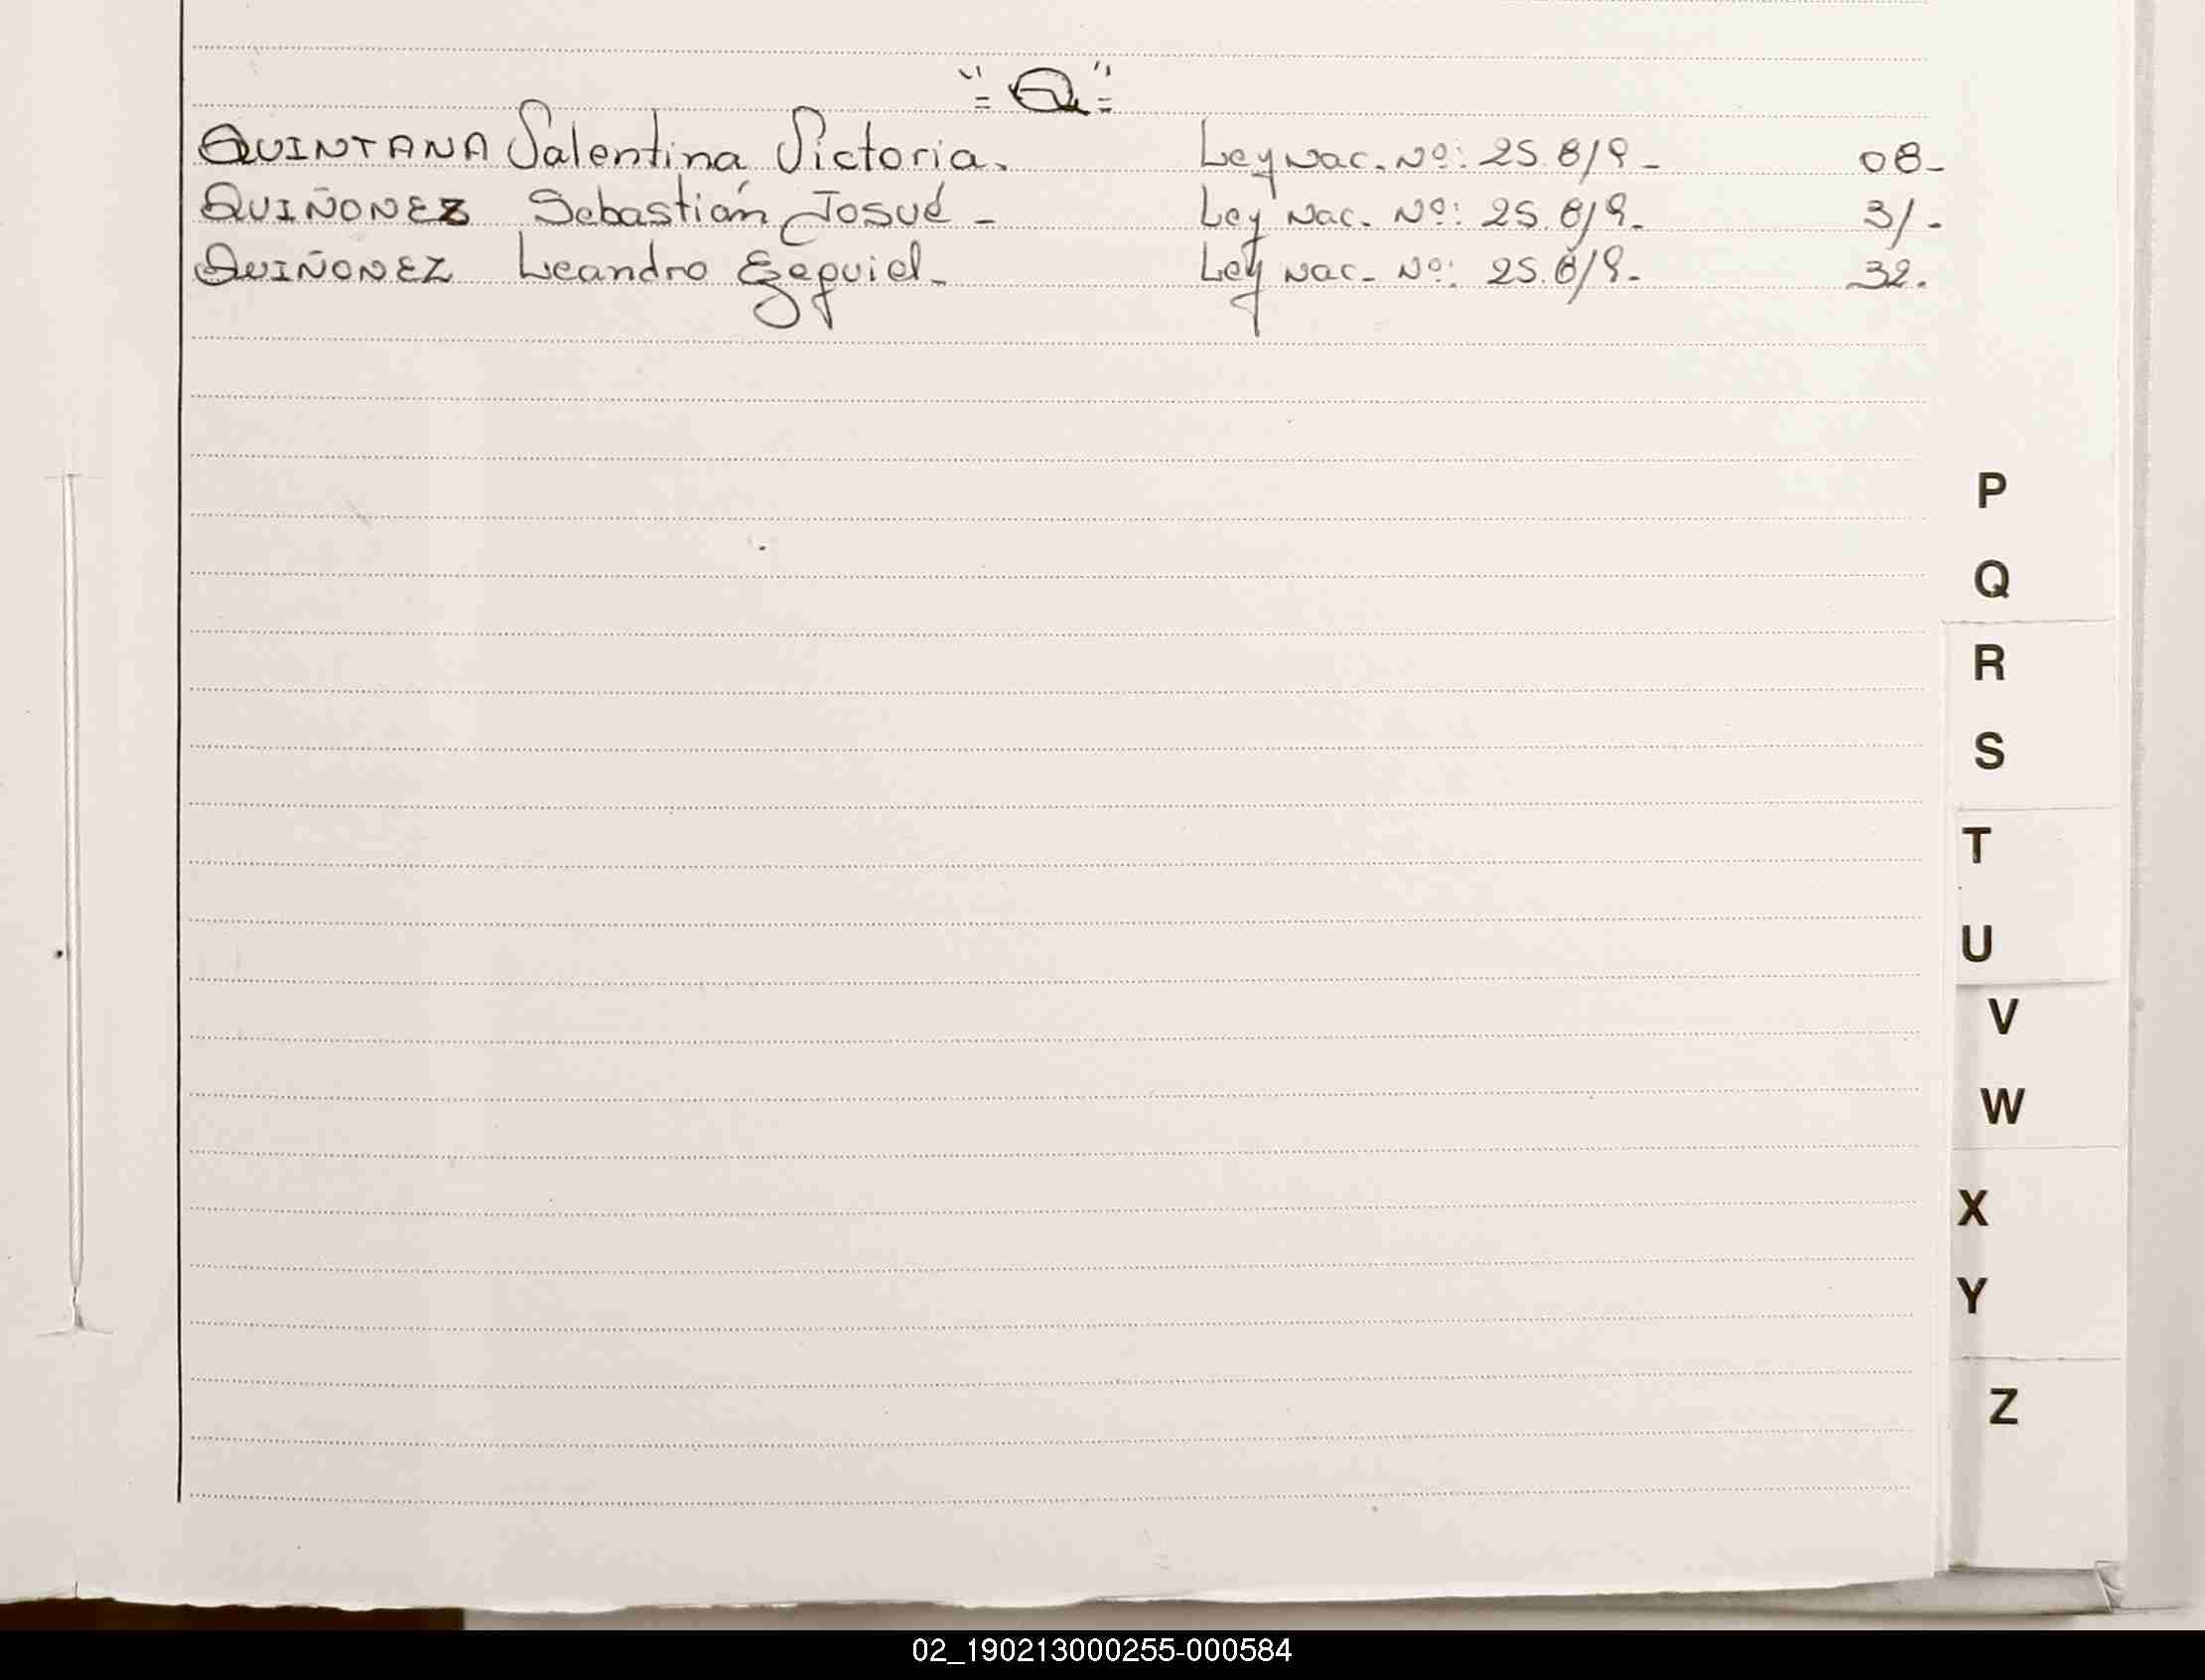 "Q"
QUINTANA Valentina Victoria. Ley Nac. Nº: 25.819- 08-
QUIÑONEZ Sebastián Josué - Ley Nac. Nº: 25.819. 31-
QUIÑONEZ Leandro Ezequiel- Ley Nac- Nº: 25.819- 32.
P
Q
R
S
T
U
V
W
X
Y
Z
02_190213000255-000584